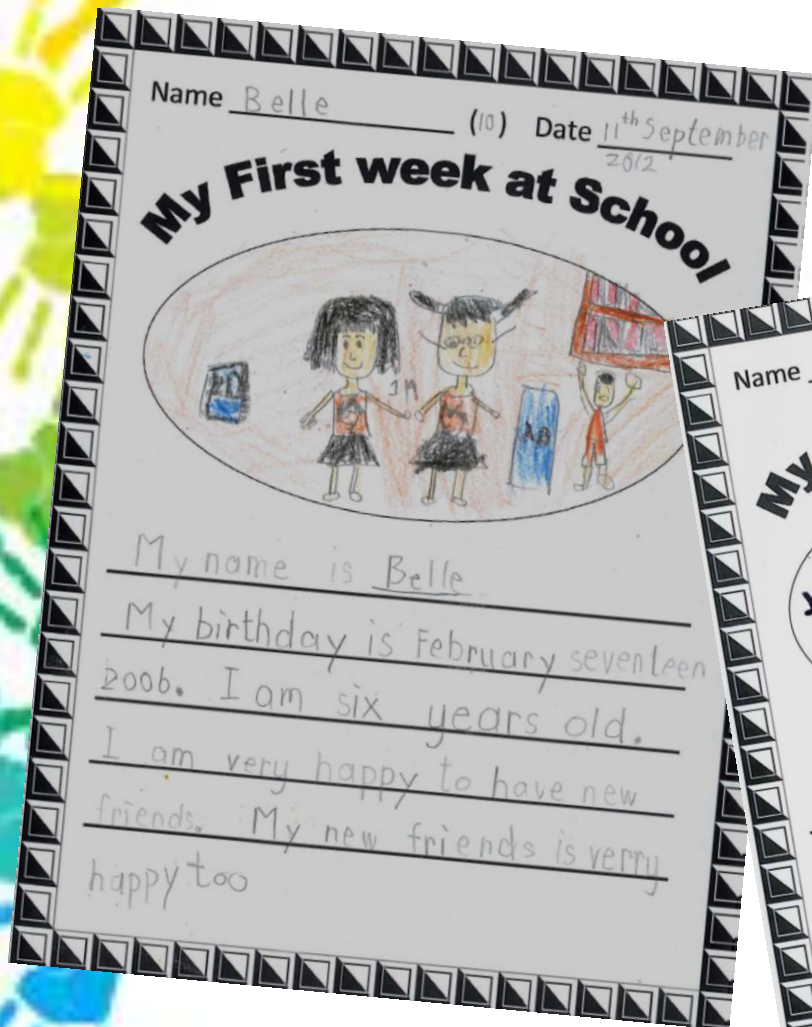 Name Belle (10) Date 11th September
2012
My First week at School
1A
AB
My name is Belle
My birthday is February seventeen
2006. I am six years old.
I am very happy to have new
friends. My new friends is verry
happy too
Name
My